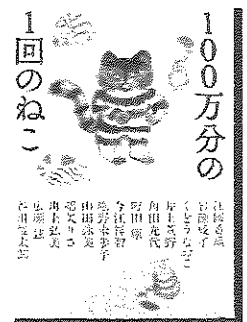 100万分の
1回のねこ
江國香織
岩瀬成子
くどうなおこ
井上荒野
角田光代
町田 康
今江祥智
唯野未歩子
山田詠美
綿矢りさ
川上弘美
広瀬 弦
谷川俊太郎